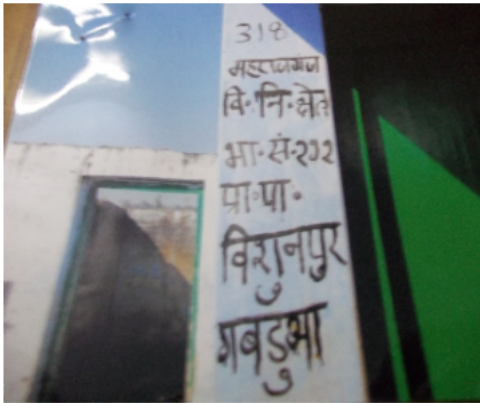 318
महराजगंज
वि॰नि॰क्षेत्र
भा॰सं॰२९२
प्रा॰पा॰
विशुनपुर
गबडुआ